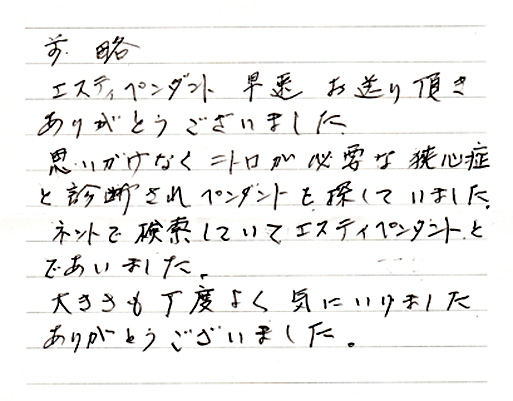 前略
エスティペンダント 早速 お送り頂き
ありがとうございました
思いがけなく ニトロが必要な 狭心症
と診断され ペンダントを探していました。
ネットで検索していてエスティペンダントと
であいました。
大きさも丁度よく 気にいりました
ありがとうございました。